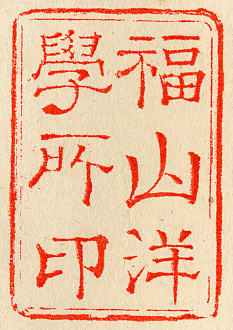 福山洋
學所印